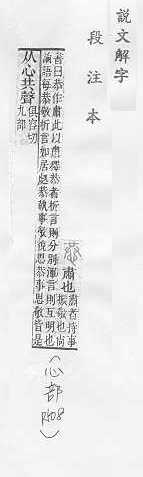 說文解字
段注本
恭 肅也 肅者持事
振敬也尚
書曰恭作肅此以肅釋恭者析言則分別渾言則互明也
論語每恭敬析言如居處恭執事敬皃思恭事思敬皆是
从心共聲 俱容切
九部
(心部 P508)